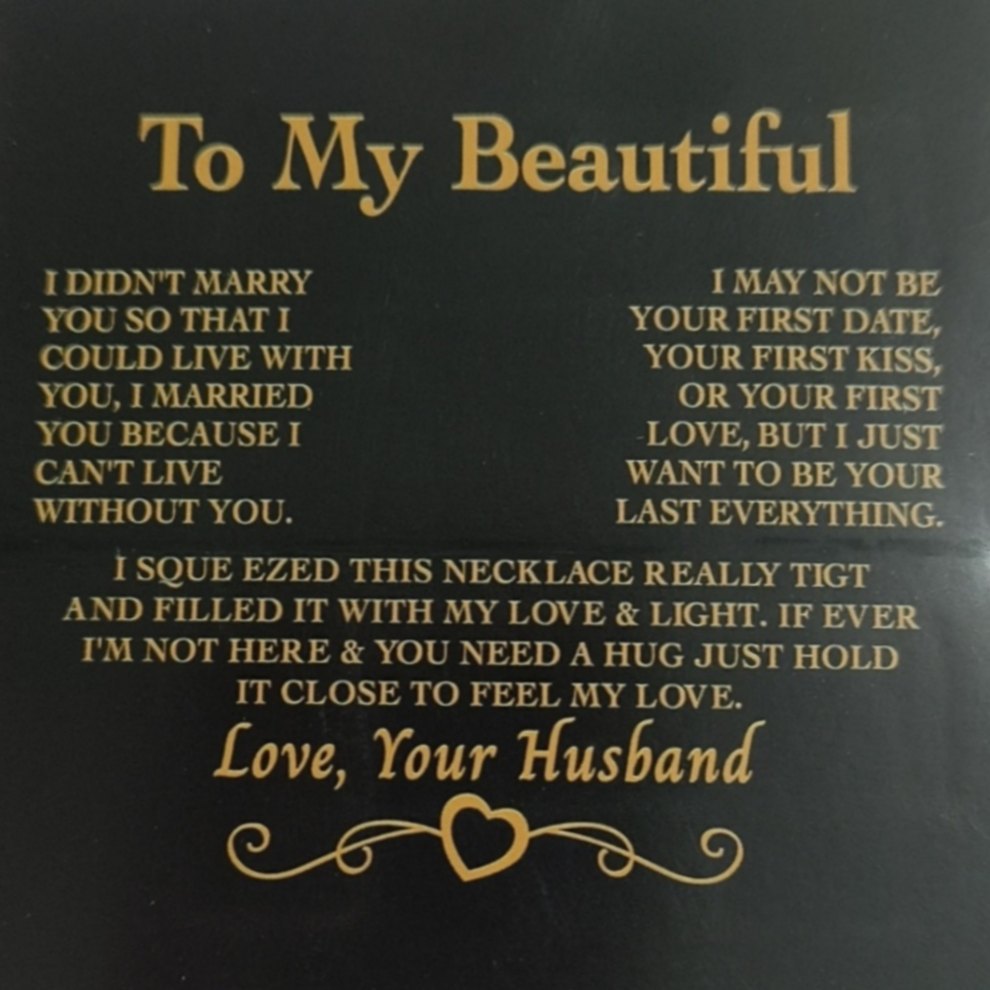 To My Beautiful
I DIDN'T MARRY
YOU SO THAT I
COULD LIVE WITH
YOU, I MARRIED
YOU BECAUSE I
CAN'T LIVE
WITHOUT YOU.
I MAY NOT BE
YOUR FIRST DATE,
YOUR FIRST KISS,
OR YOUR FIRST
LOVE, BUT I JUST
WANT TO BE YOUR
LAST EVERYTHING.
I SQUE EZED THIS NECKLACE REALLY TIGT
AND FILLED IT WITH MY LOVE & LIGHT. IF EVER
I'M NOT HERE & YOU NEED A HUG JUST HOLD
IT CLOSE TO FEEL MY LOVE.
Love, Your Husband